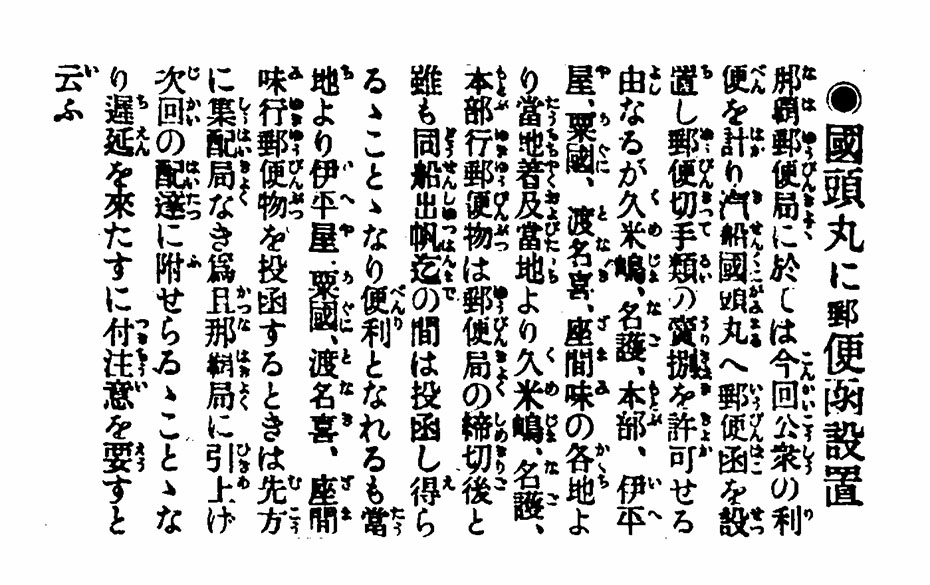 ◉國頭丸に郵便函設置
那覇郵便局に於ては今回公衆の利
便を計り汽船國頭丸へ郵便函を設
置し郵便切手類の賣捌を許可せる
由なるが久米嶋、名護、本部、伊平
屋、粟國、渡名喜、座間味の各地よ
り當地着及當地より久米嶋、名護、
本部行郵便物は郵便局の締切後と
雖も同船出帆迄の間は投函し得ら
るゝことゝなり便利となれるも當
地より伊平屋、粟國、渡名喜、座間
味行郵便物を投函するときは先方
に集配局なき爲且那覇局に引上げ
次回の配達に附せらるゝことゝな
り遲延を來たすに付注意を要すと
云ふ